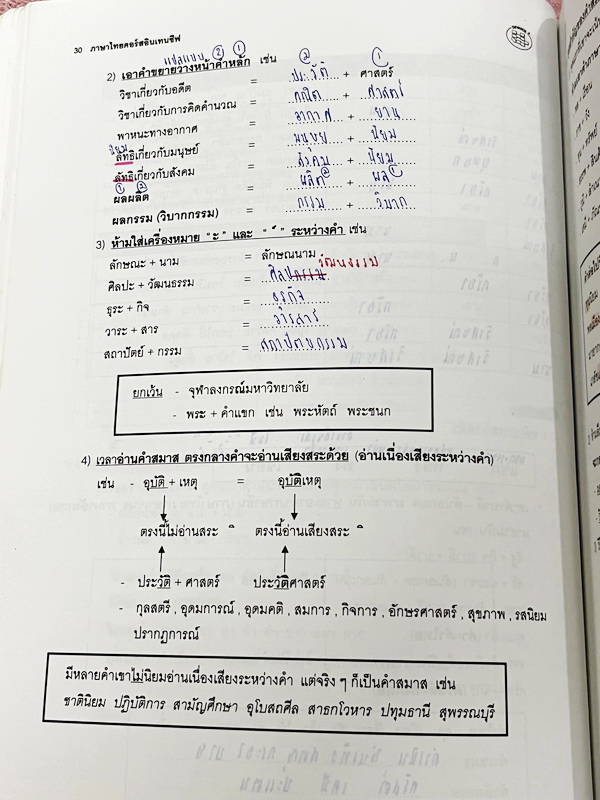 30 ภาษาไทยคอร์สอินเทนซีฟ
แปลแบบ ② ①
2) เอาคำขยายวางหน้าคำหลัก เช่น ② ①
วิชาเกี่ยวกับอดีต = ประวัติ + ศาสตร์
วิชาเกี่ยวกับการคิดคำนวณ = คณิต + ศาสตร์
พาหนะทางอากาศ = อากาศ + ยาน
นิยม
ลัทธิเกี่ยวกับมนุษย์ = มนุษย + นิยม
ลัทธิเกี่ยวกับสังคม = สังคม + นิยม
① ② ② ①
ผลผลิต = ผลิต + ผล
ผลกรรม (วิบากกรรม) = กรรม + วิบาก
3) ห้ามใส่เครื่องหมาย "ะ" และ " ์ " ระหว่างคำ เช่น
ลักษณะ + นาม = ลักษณนาม
ศิลปะ + วัฒนธรรม = ศิลปกรรม วัฒนธรรม
ธุระ + กิจ = ธุรกิจ
วาระ + สาร = วารสาร
สถาปัตย์ + กรรม = สถาปัตยกรรม
ยกเว้น - จุฬาลงกรณ์มหาวิทยาลัย
- พระ + คำแขก เช่น พระหัตถ์ พระชนก
4) เวลาอ่านคำสมาส ตรงกลางคำจะอ่านเสียงสระด้วย (อ่านเนื่องเสียงระหว่างคำ)
เช่น - อุบัติ + เหตุ = อุบัติเหตุ
ตรงนี้ไม่อ่านสระ ิ ตรงนี้อ่านเสียงสระ ิ
- ประวัติ + ศาสตร์ ประวัติศาสตร์
- กุลสตรี , อุดมการณ์ , อุดมคติ , สมการ , กิจการ , อักษรศาสตร์ , สุขภาพ , รสนิยม
ปรากฏการณ์
มีหลายคำเขาไม่นิยมอ่านเนื่องเสียงระหว่างคำ แต่จริง ๆ ก็เป็นคำสมาส เช่น
ชาตินิยม ปฏิบัติการ สามัญศึกษา อุโบสถศีล สาธกโวหาร ปทุมธานี สุพรรณบุรี